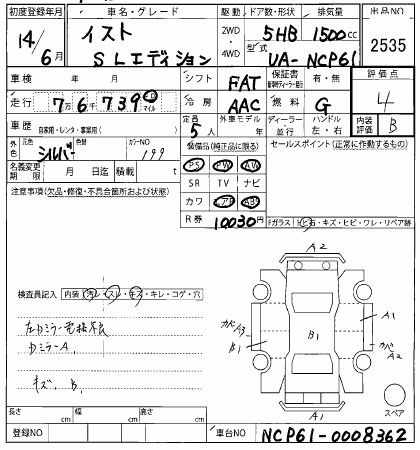 初度登録年月 車名・グレード 駆動 ドア数・形状 排気量 出品NO
14/6月 イスト SLエディション 2WD・4WD 5HB 1500cc 2535
型式 UA-NCP61
車検 年 月 シフト FAT 保証書 新車時ディーラー発行 有・無 評価点
走行 7万6千739 km マイル 冷房 AAC 燃料 G 4
車歴 自家用・レンタ・事業用( ) 定員 5人 外車モデル 年 ディーラー・並行 ハンドル 左・右 内装評価 B
外色 元色 シルバー 色替 カラーNO 199 装備品(純正品に限る) セールスポイント(正常に作動するもの)
名義変更期限 月 日迄 積載 t PS PW AW
注意事項(欠品・修復・不具合箇所および状態) SR TV ナビ
カワ エアB ABS
R券 10030円 Fガラス ヒ石・キズ・ヒビ・ワレ・リペア跡
A2
検査員記入 内装 汚レ・スレ・キズ・キレ・コゲ・穴
左Dミラー電格不良
Dミラー A,
キズ, B,
カベA3 B1 B1 A1 カベA2
A1 スペア
長さ cm 幅 cm 高さ cm
登録NO 車台NO NCP61-0008362